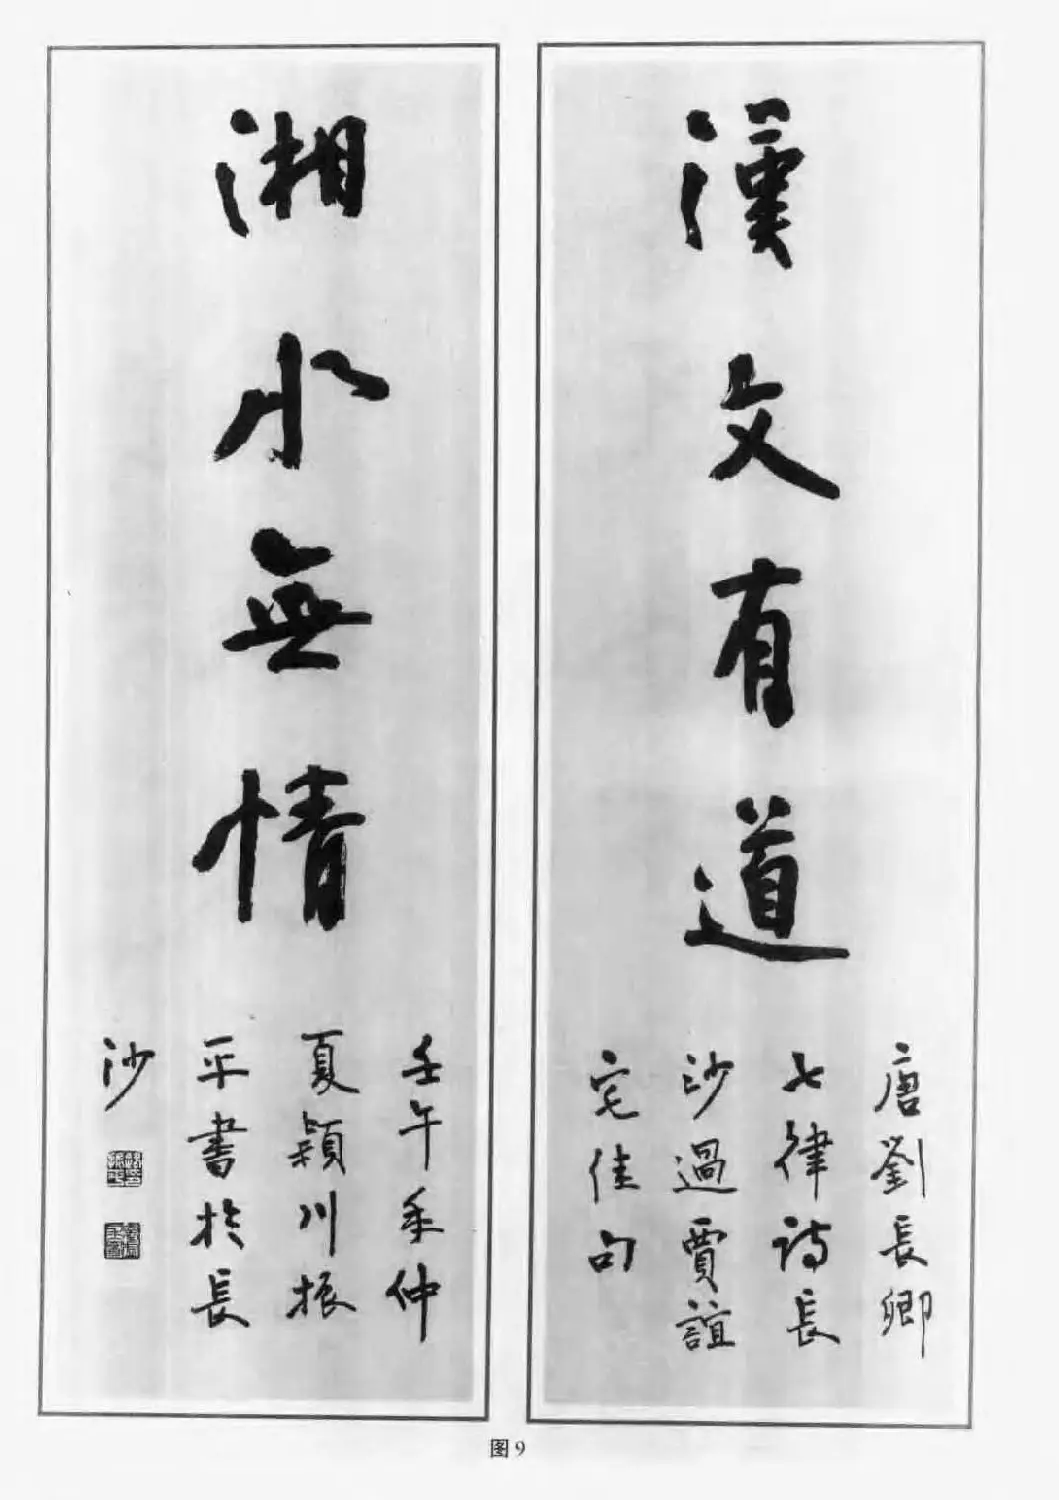 漢文有道
唐劉長卿
七律詩長
沙過賈誼
宅佳句
湘水無情
壬午年仲
夏潁川振
平書於長
沙
图9